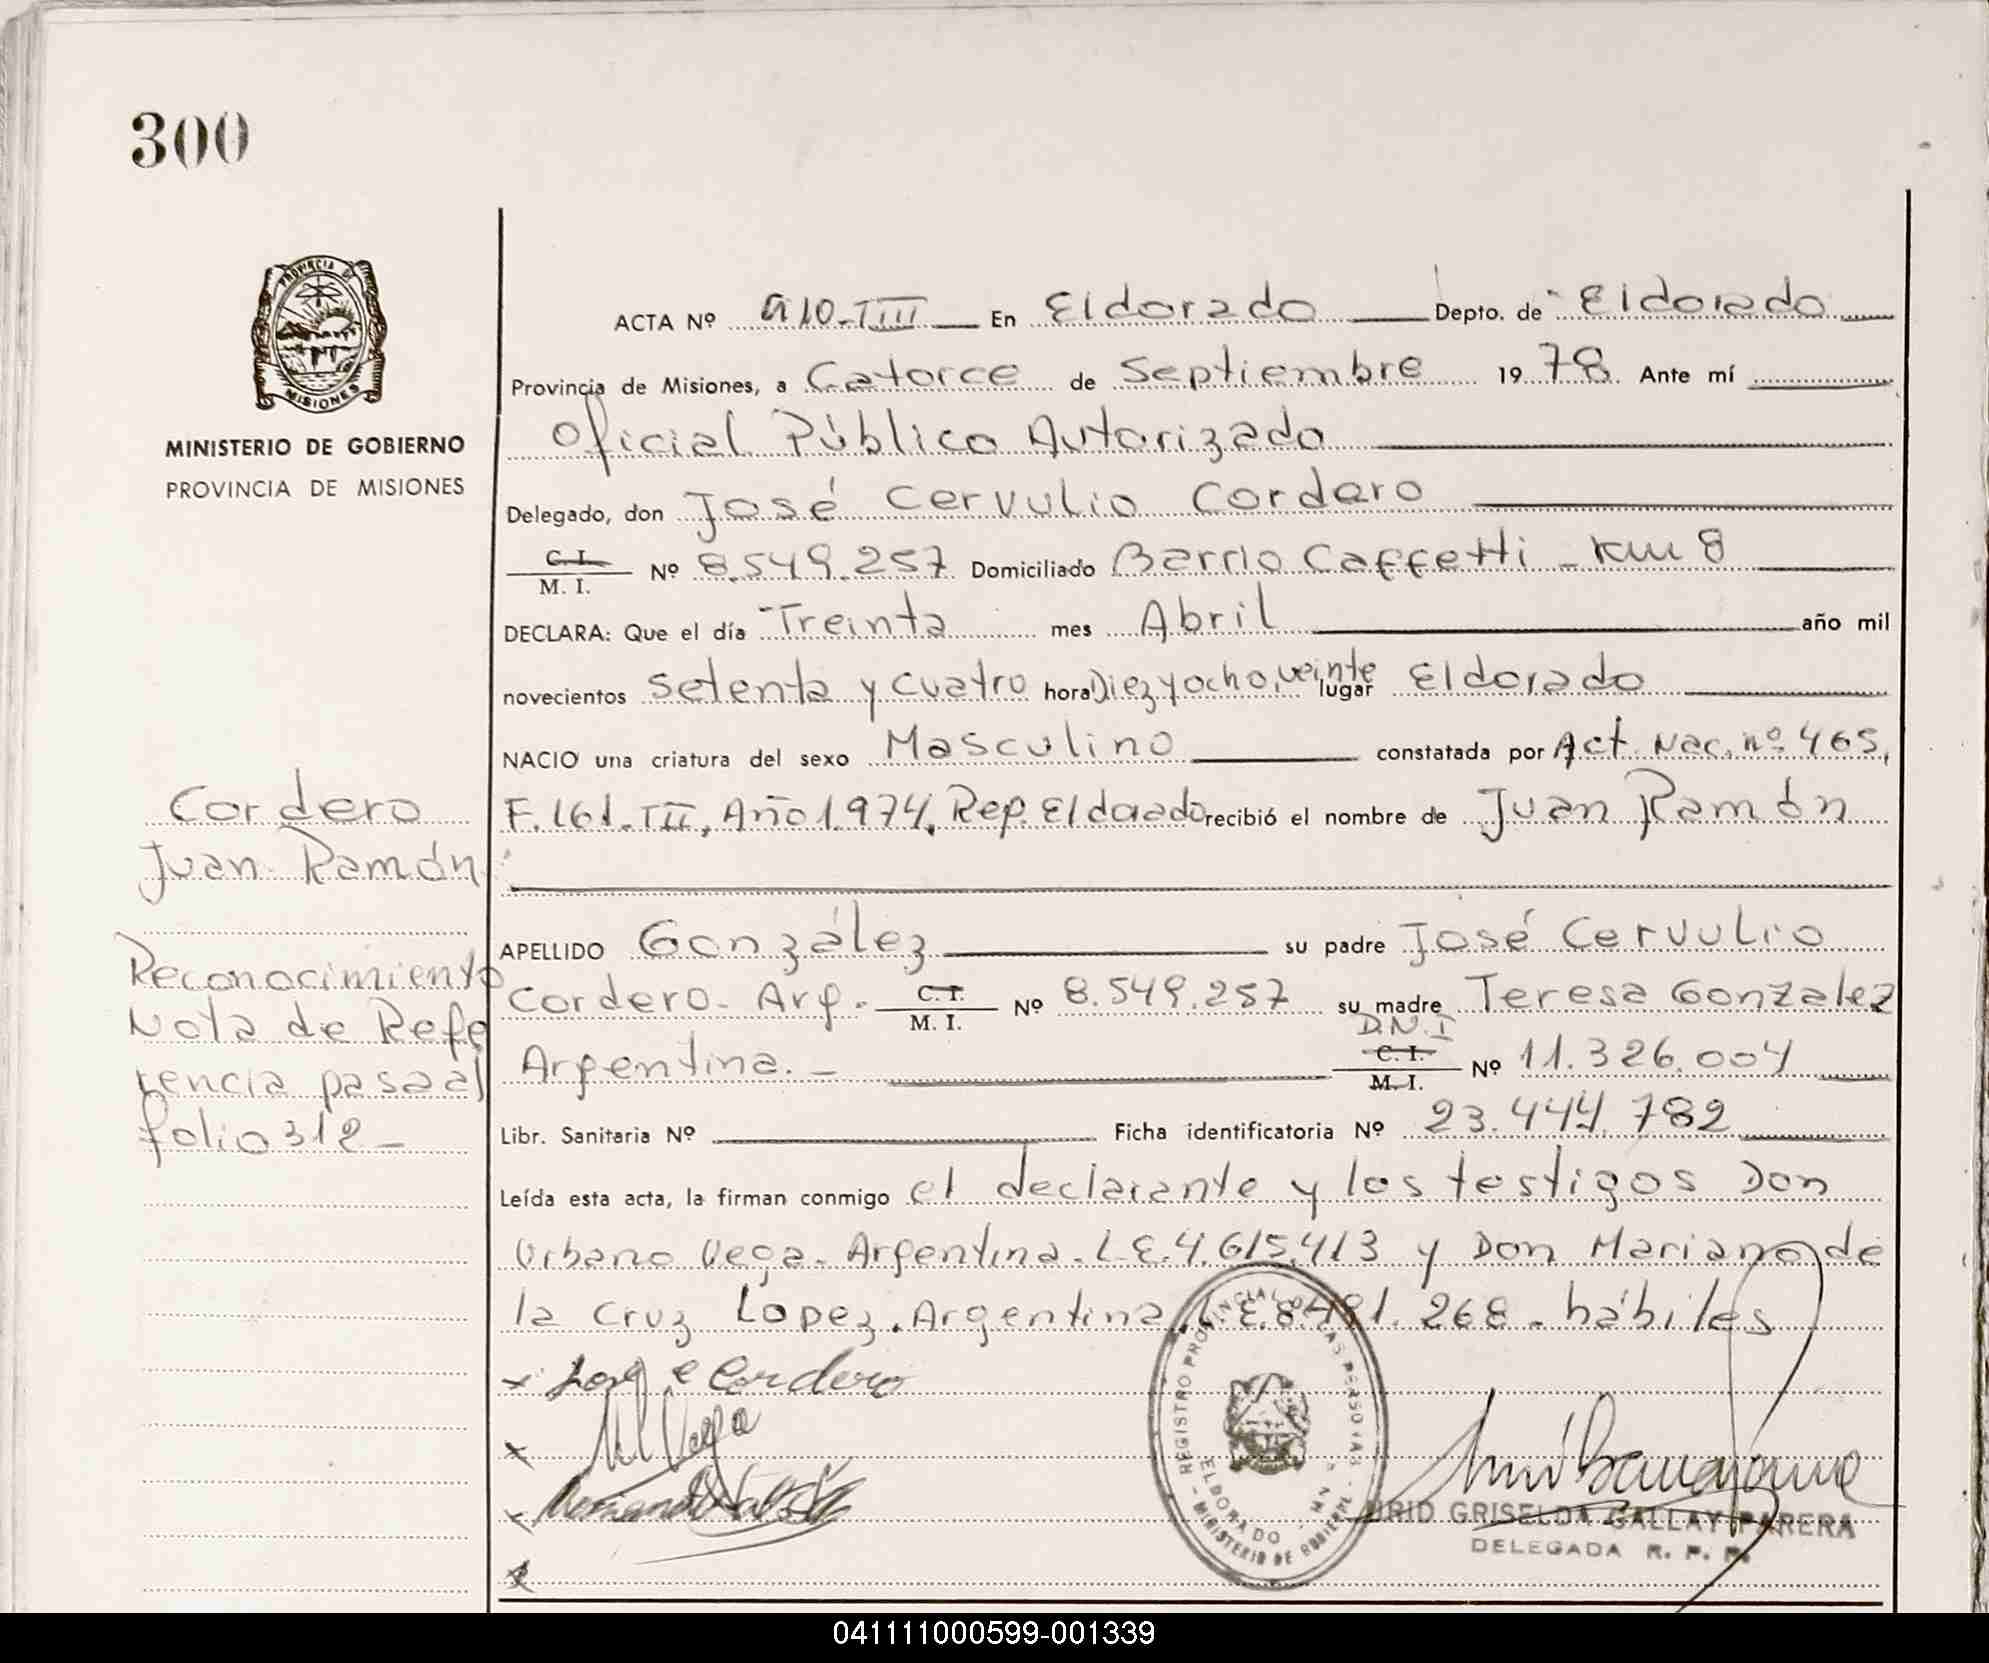 300
PROVINCIA DE
MISIONES
MINISTERIO DE GOBIERNO
PROVINCIA DE MISIONES
ACTA Nº 910-TIII En Eldorado Depto. de Eldorado
Provincia de Misiones, a Catorce de Septiembre 1978. Ante mí
Oficial Público Autorizado
Delegado, don José Cervulio Cordero
C.I. M. I. Nº 8.549.257 Domiciliado Barrio Caffetti - Km 8
DECLARA: Que el día Treinta mes Abril año mil
novecientos setenta y cuatro hora Diez y ocho, veinte lugar Eldorado
NACIO una criatura del sexo Masculino constatada por Act. Nac. nº 465,
F. 161. TII, Año 1.974, Rep. Eldorado recibió el nombre de Juan Ramón
APELLIDO González su padre José Cervulio
Cordero - Arg. C.I. M. I. Nº 8.549.257 su madre Teresa Gonzalez
Argentina. - D.N.I C.I. M.I. Nº 11.326.004
Libr. Sanitaria Nº Ficha identificatoria Nº 23.444.782
Leída esta acta, la firman conmigo el declarante y los testigos Don
Urbano Vega - Argentina - L.E. 4.615.413 y Don Mariano de
la Cruz Lopez. Argentina. L.E. 8.491.268 - hábiles
Cordero
Juan Ramón
Reconocimiento
Nota de Refe
rencia pasa al
folio 312 -
x José C Cordero
x Vega
x
x
REGISTRO PROVINCIAL DE LAS PERSONAS
ELDORADO
MINISTERIO DE GOBIERNO
GRISELDA GALLAY PARERA
DELEGADA R. P. P.
041111000599-001339